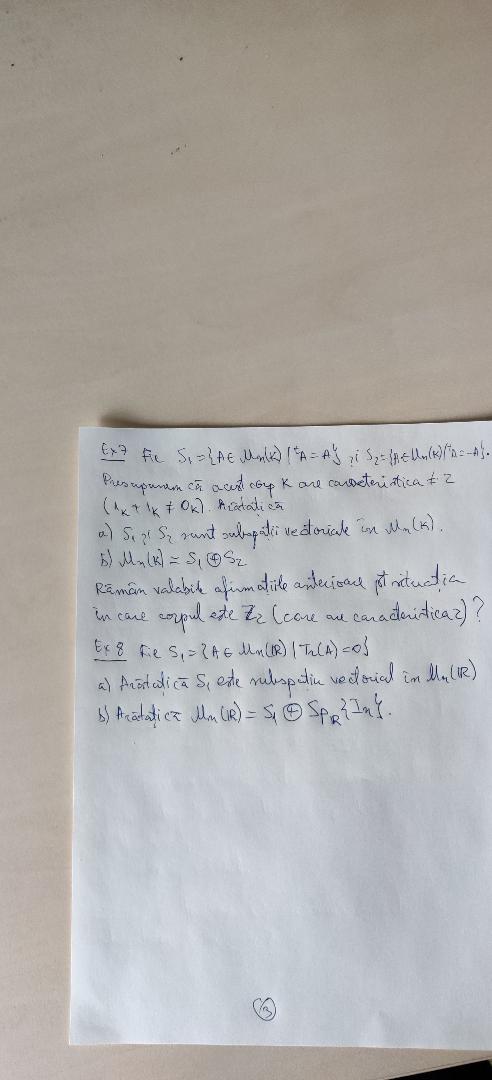 Ex7 Fie S₁={A∈ Mn(K) / ᵗA = A} și S₂={A∈Mn(K)/ᵗA=-A}.
Presupunem că acest corp K are caracteristica ≠ 2
(1K + 1K ≠ 0K). Arătați că
a) S₁ și S₂ sunt subspații vectoriale în Mn(K).
b) Mn(K) = S₁ ⊕ S₂
Rămân valabile afirmațiile anterioare pt situația
în care corpul este Z₂ (care are caracteristica 2)?
Ex 8 Fie S₁ = {A ∈ Mn(R) / Tr(A) = 0}
a) Arătați că S₁ este subspațiu vectorial în Mn(R)
b) Arătați că Mn(R) = S₁ ⊕ SpR{In}.
3